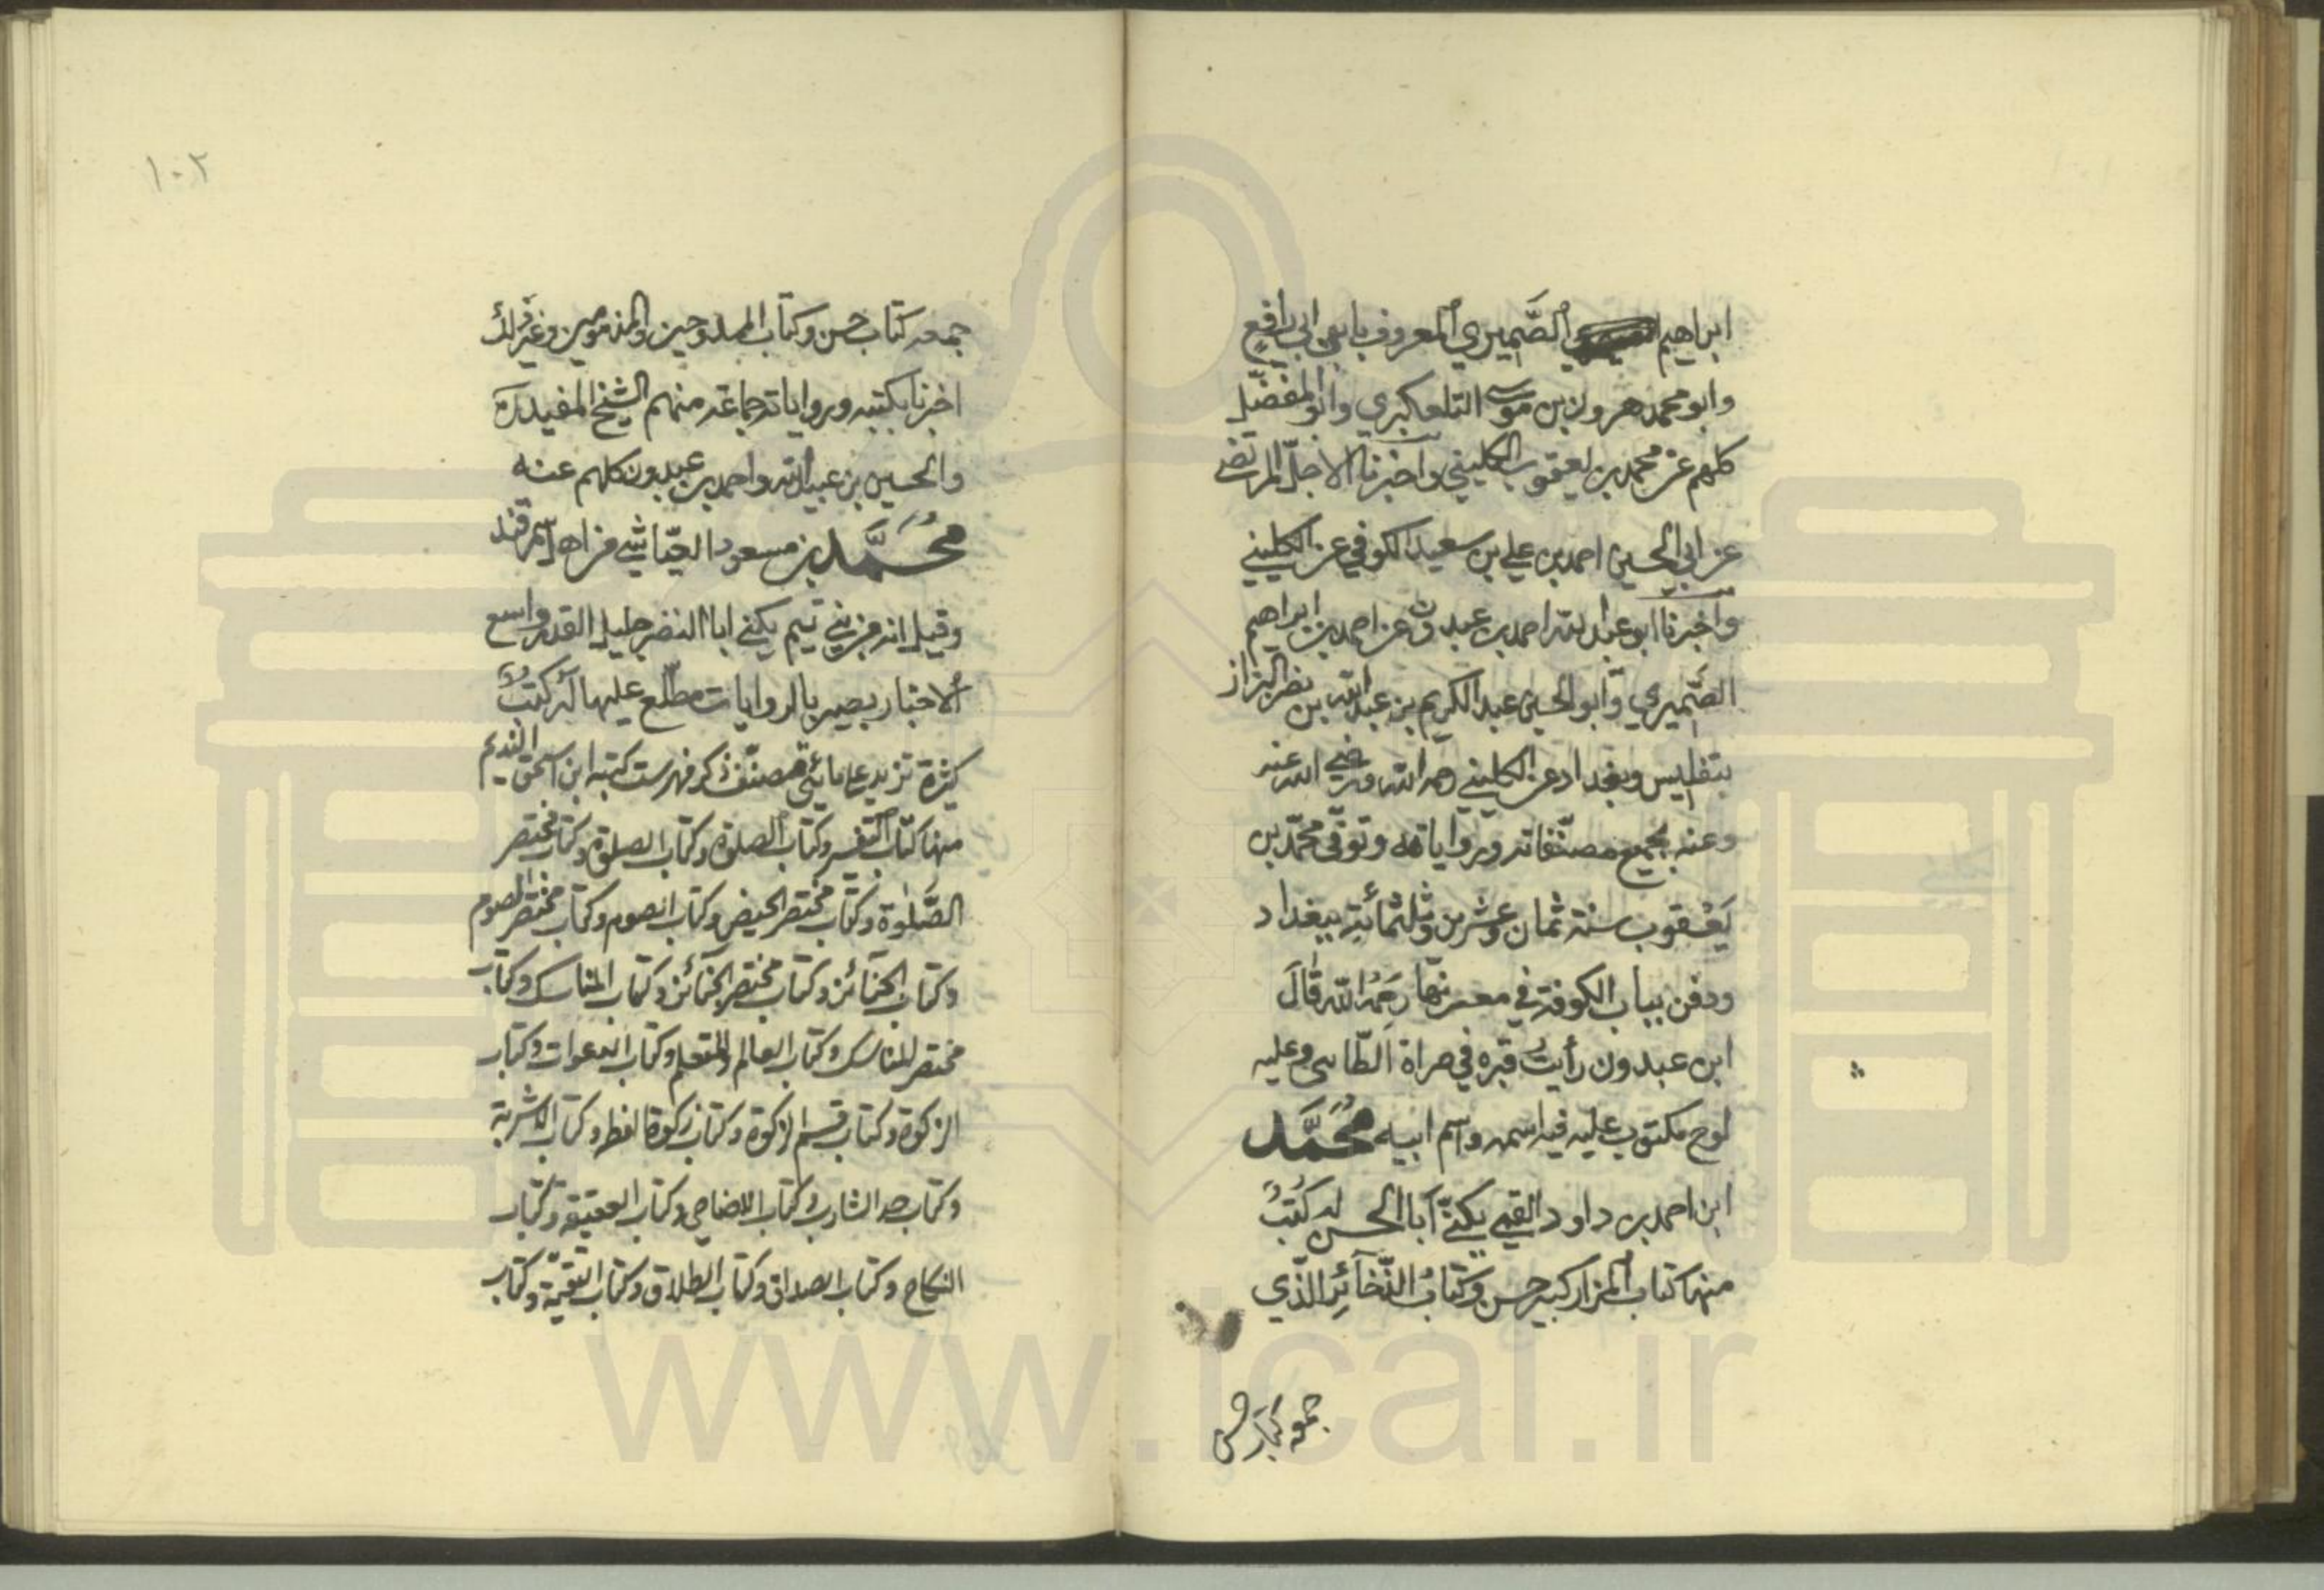 ابراهيم الصَّيمري المعروف بابن ابي رافع
وابو محمد هرون بن موسى التلعكبري وابو المفضّل
كلهم عن محمد بن يعقوب الكليني واخبرنا الاجلّ المرتضى
عن ابي الحسين احمد بن علي بن سعيد الكوفي عن الكليني
واخبرنا ابو عبد الله احمد بن عبدون عن احمد بن ابراهيم
الصَّيمري وابو الحسين عبد الكريم بن عبد الله بن نصر البزاز
بتفليس وبغداد عن الكليني رحمه الله ورضي الله عنه
وعنه بجميع مصنّفاته ورواياته وتوفّى محمّد بن
يَعْقوب سنة ثمان وعشرين وثلثمائية ببغداد
ودفن بباب الكوفة في رَحِمَهُ الله قَالَ
ابن عبدون رأيتُ قبره في صراة الطّائى وعليه
لوح مكتوب عليه فيه اسمه واسم ابيه مُحَمَّد
ابن احمد بن داود القمي يكنّى اَبا الحسن له كُتُبٌ
منها كتاب اَلمزار كبير حسن وكتاب الذّخآئِر الذّي
جمعه كتاب حسن
١٠٢
جمعه كتاب حسن وكتاب الممدوحين والمذمومين وغير ذلك
اخبرنا بكتبه ورواياته جماعة منهم الشيخ المفيد ره
والحسين بن عبيد الله واحمد بن عبدون كلهم عنه
مُحَمَّد بن مسعود العيّاشي من اهل سمرقند
وقيل انه من بني تميم يكنى ابا النضر جليل القدر واسع
ألاخبار بصير بالروايات مطّلع عليها له كتبٌ
كثيرة تزيد على مائتى مصنّف ذكر فهرست كتبه ابن اسحق النديم
منها كتاب التفسير وكتاب الصلوة وكتاب الصلوة وكتاب مختصر
الصَّلوة وكتاب مختصر الحيض وكتاب الصوم وكتاب مختصر الصوم
وكتاب الجنآئز وكتاب مختصر الجنآئز وكتاب المناسك وكتاب
مختصر المناسك وكتاب العالم والمتعلم وكتاب الدعوات وكتاب
الزكوة وكتاب قسم الزكوة وكتاب زكوة الفطر وكتاب الاشربة
وكتاب حد الشارب وكتاب الاضاحي وكتاب العقيقة وكتاب
النكاح وكتاب الصداق وكتاب الطلاق وكتاب التقيّة وكتاب
www.ical.ir